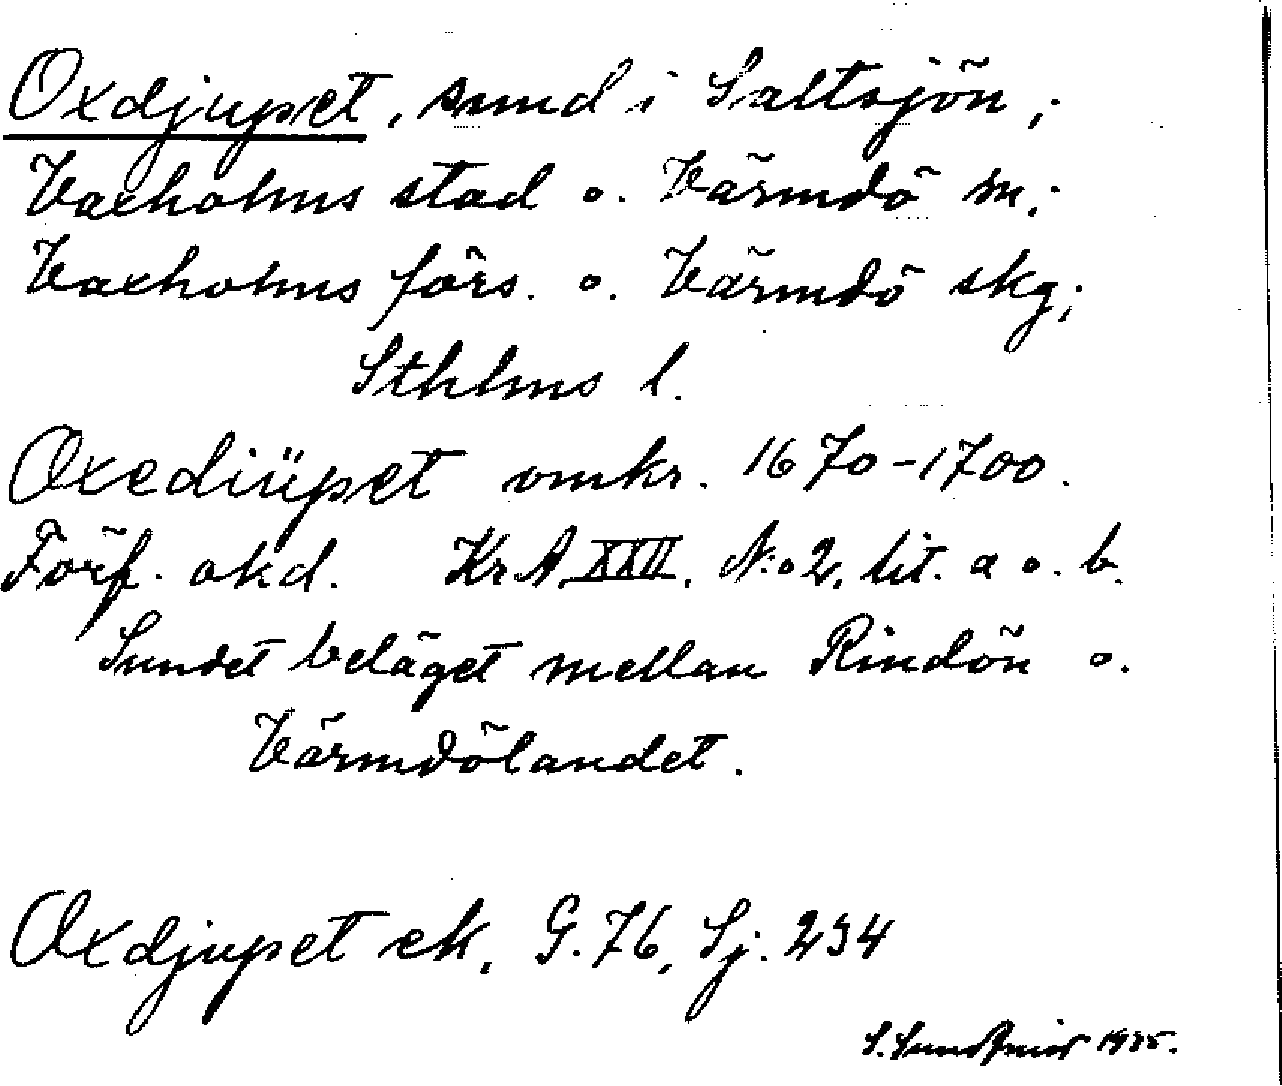 Oxdjupet, sund i Saltsjön;
Vaxholms stad o. Värmdö sn;
Vaxholms förs. o. Värmdö skg;
Sthlms l.
Oxediüpet omkr. 1670-1700.
Förf. okd. KrA XXII. N:o 2, lit. a o. b.
Sundet beläget mellan Rindön o.
Värmdölandet.
Oxdjupet ek, G. 76, Sj. 234
1935.